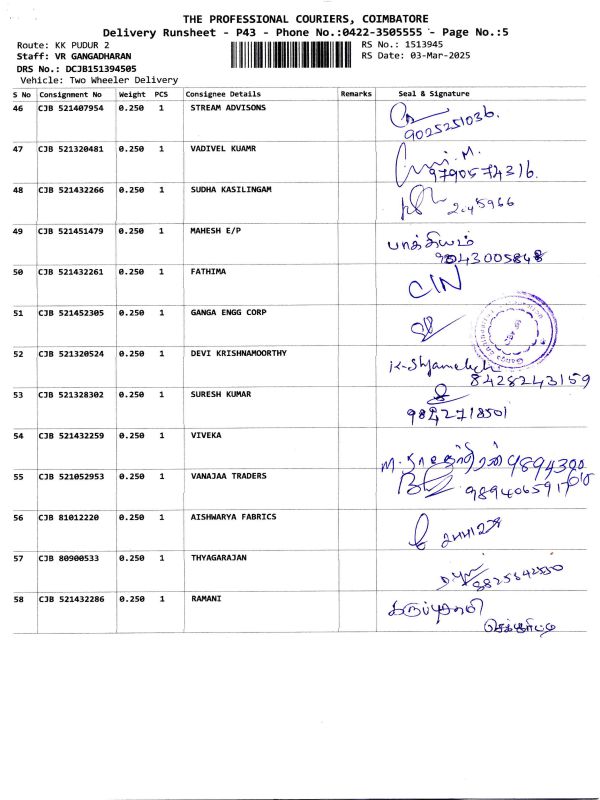 THE PROFESSIONAL COURIERS, COIMBATORE
Delivery Runsheet - P43 - Phone No.:0422-3505555 - Page No.:5
Route: KK PUDUR 2
RS No.: 1513945
Staff: VR GANGADHARAN
RS Date: 03-Mar-2025
DRS No.: DCJB151394505
Vehicle: Two Wheeler Delivery
S No Consignment No Weight PCS Consignee Details Remarks Seal & Signature
46 CJB 521407954 0.250 1 STREAM ADVISONS
9025251036.
47 CJB 521320481 0.250 1 VADIVEL KUAMR
9790574316.
48 CJB 521432266 0.250 1 SUDHA KASILINGAM
49 CJB 521451479 0.250 1 MAHESH E/P பாக்கியம்
9043005848
50 CJB 521432261 0.250 1 FATHIMA
51 CJB 521452305 0.250 1 GANGA ENGG CORP
52 CJB 521320524 0.250 1 DEVI KRISHNAMOORTHY
8428243159
53 CJB 521328302 0.250 1 SURESH KUMAR
9842718501
54 CJB 521432259 0.250 1 VIVEKA
55 CJB 521052953 0.250 1 VANAJAA TRADERS
56 CJB 81012220 0.250 1 AISHWARYA FABRICS
57 CJB 80900533 0.250 1 THYAGARAJAN
58 CJB 521432286 0.250 1 RAMANI